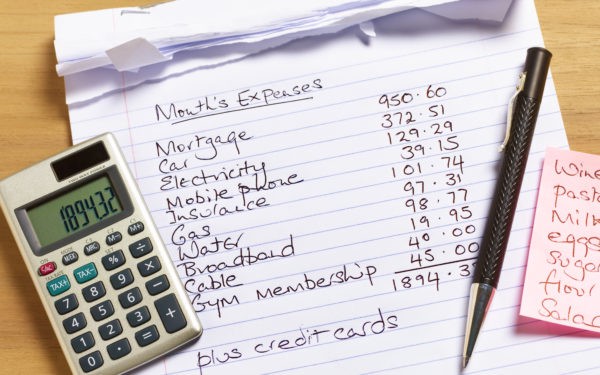 Month's Expenses
Mortgage 950·60
Car 372·51
Electricity 129·29
Mobile phone 39·15
Insurance 101·74
Gas 97·31
Water 98·77
Broadband 19·95
Cable 40·00
Gym Membership 45·00
1894·32
plus credit cards
1894.32
MRC M− M+
TAX+ TAX− % ÷
7 8 9 ×
4 5 6 −
1 2 3 +
0 . =
Wine
pasta
Milk
eggs
sugar
flour
Salad